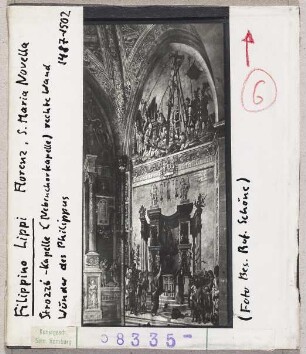 Filippino Lippi Florenz, S. Maria Novella
Strozzi-Kapelle (Nebenchorkapelle) rechte Wand
Wunder des Philippus 1487-1502
(Foto Bes. Prof. Schöne)
6
Kunstgesch.
Sem. Hamburg
08335